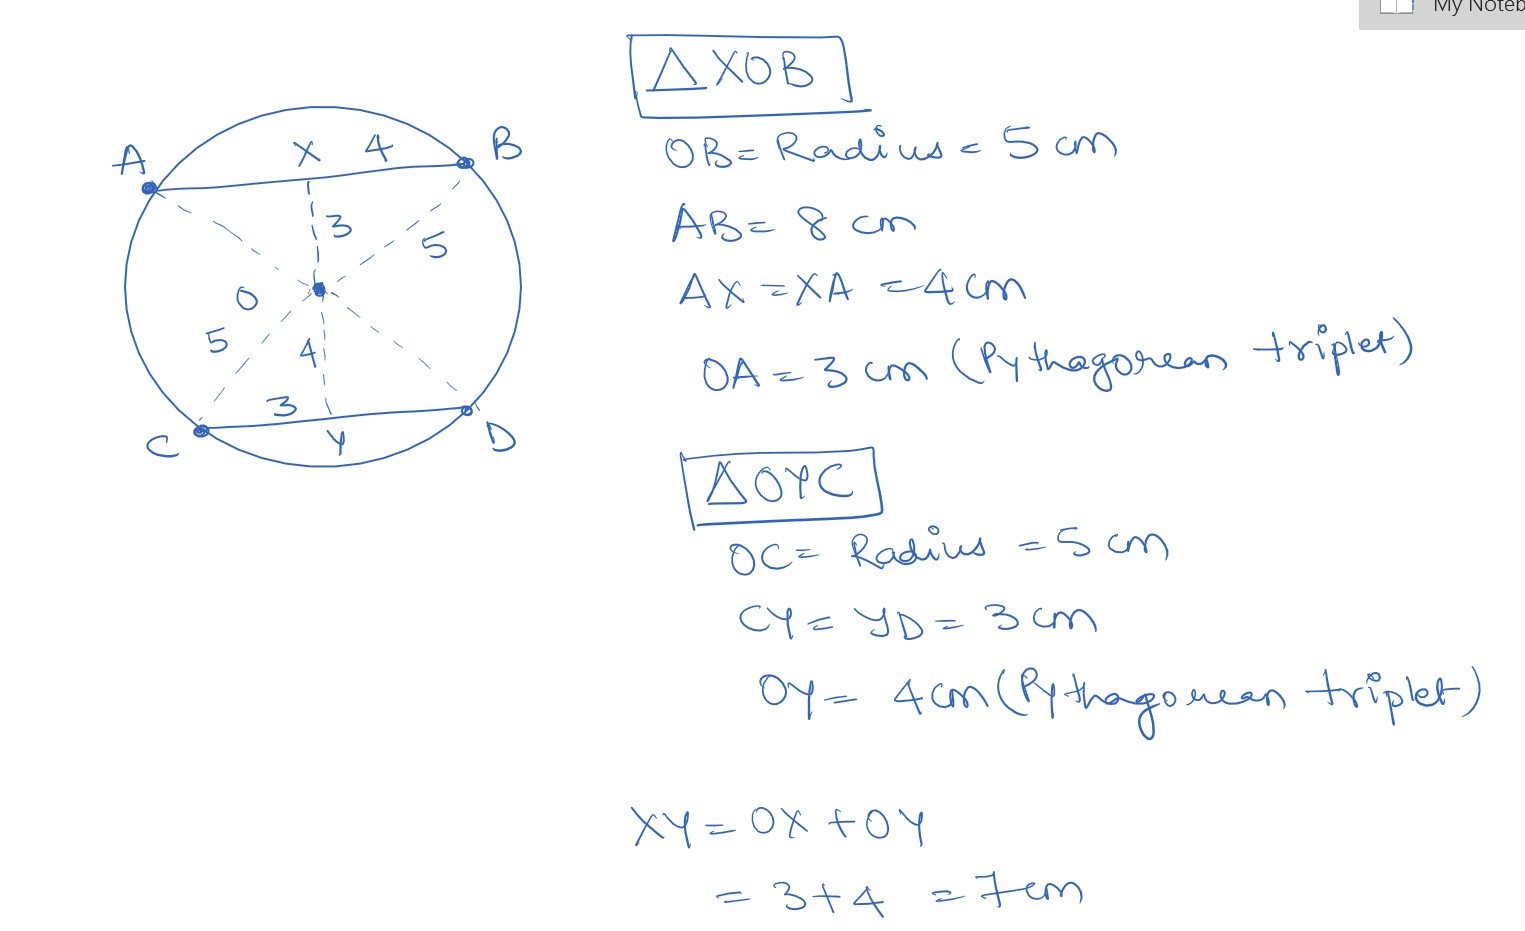 My Noteb
△XOB
A
X 4
B
3
5
O
5
4
3
C
Y
D
OB = Radius = 5 cm
AB = 8 cm
AX = XA = 4 cm
OA = 3 cm (Pythagorean triplet)
△OYC
OC = Radius = 5 cm
CY = YD = 3 cm
OY = 4 cm (Pythagorean triplet)
XY = OX + OY
= 3 + 4 = 7 cm